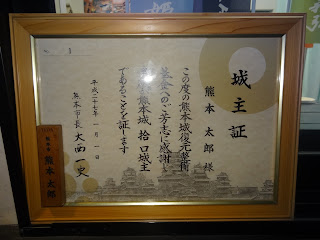 城主証
熊本 太郎 様
この度の熊本城復元整備
基金へのご芳志に感謝し
熊本城 拾口城主
であることを証します
平成二十七年一月一日
熊本市長 大西一史
熊本 太郎